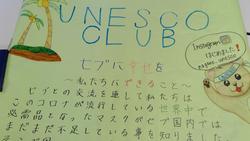 UNESCO
CLUB
Instagram
はじめました!
セブに幸せを
〜私たちにできること〜
セブとの交流を通して私たちは
このコロナが流行している世界中で
必需品となったマスクがセブ国内では
まだまだ不足している事を知りました